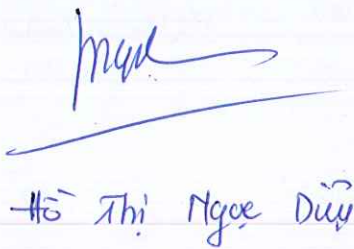 Hồ Thị Ngọc Diễm